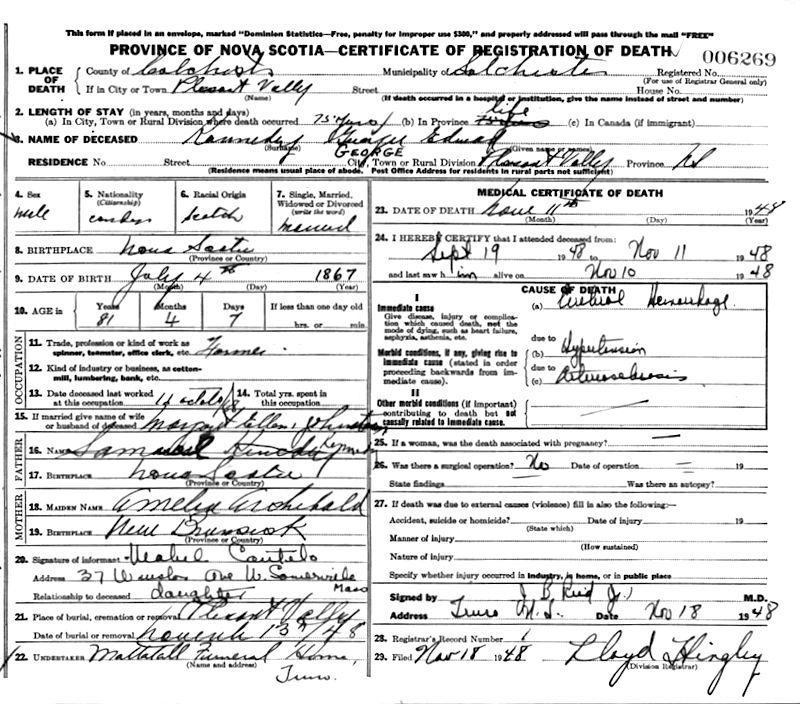 This form if placed in an envelope, marked "Dominion Statistics—Free, penalty for improper use $300," and properly addressed will pass through the mail "FREE"
PROVINCE OF NOVA SCOTIA—CERTIFICATE OF REGISTRATION OF DEATH
006269
1. PLACE OF DEATH County of Colchester Municipality of Colchester Registered No.
(For use of Registrar General only)
If in City or Town Plesant Vally Street House No.
(Name) (If death occurred in a hospital or institution, give the name instead of street and number)
2. LENGTH OF STAY (in years, months and days)
(a) In City, Town or Rural Division where death occurred 75 years (b) In Province Life (c) In Canada (if immigrant)
3. NAME OF DECEASED Kennedy George Edward
(Surname) GEORGE (Given name or names)
RESIDENCE No. Street City, Town or Rural Division Plesant Vally Province NS
(Residence means usual place of abode. Post Office Address for residents in rural parts not sufficient)
4. Sex male
5. Nationality (Citizenship)
6. Racial Origin Scotch
7. Single, Married, Widowed or Divorced (write the word) married
8. BIRTHPLACE Nova Scotia
(Province or Country)
9. DATE OF BIRTH July 4th 1867
(Month) (Day) (Year)
10. AGE in Years 81 Months 4 Days 7 If less than one day old hrs. or min.
OCCUPATION
11. Trade, profession or kind of work as spinner, teamster, office clerk, etc. Farmer
12. Kind of industry or business, as cotton-mill, lumbering, bank, etc.
13. Date deceased last worked at this occupation
14. Total yrs. spent in this occupation
15. If married give name of wife or husband of deceased Margaret Ellen Johnston
FATHER
16. Name Samuel Kennedy
17. Birthplace Nova Scotia
(Province or Country)
MOTHER
18. Maiden Name Amelia Archibald
19. Birthplace New Brunswick
(Province or Country)
20. Signature of informant Mabel Cantelo
Address 37 Winslow Ave W. Somerville Mass
Relationship to deceased daughter
21. Place of burial, cremation or removal Plesant Vally
Date of burial or removal 13th/48
22. UNDERTAKER Mattatall Funeral Home,
(Name and address) Truro.
MEDICAL CERTIFICATE OF DEATH
23. DATE OF DEATH Nov 11th 1948
(Month) (Day) (Year)
24. I HEREBY CERTIFY that I attended deceased from:
Sept 19 1948 to Nov 11 1948
and last saw him alive on Nov 10 1948
CAUSE OF DEATH
I
Immediate cause
Give disease, injury or complication which caused death, not the mode of dying, such as heart failure, asphyxia, asthenia, etc.
(a) Cerebral Hemorrhage.
Morbid conditions, if any, giving rise to immediate cause (stated in order proceeding backwards from immediate cause).
due to
(b) Hypertension
due to
(c) Arteriosclerosis
II
Other morbid conditions (if important) contributing to death but not causally related to immediate cause.
25. If a woman, was the death associated with pregnancy?
26. Was there a surgical operation? No Date of operation 19
State findings Was there an autopsy?
27. If death was due to external causes (violence) fill in also the following:—
Accident, suicide or homicide? Date of injury 19
(State which)
Manner of injury
(How sustained)
Nature of injury
Specify whether injury occurred in industry, in home, or in public place
Signed by J B Reid Jr. M.D.
Address Truro N.S. Date Nov 18 1948
28. Registrar's Record Number 1
29. Filed Nov 18 1948 Lloyd Hingley
(Division Registrar)